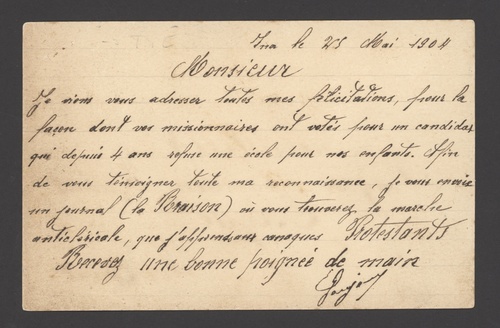 Ina le 25 Mai 1904
Monsieur
Je viens vous adresser toutes mes félicitations, pour la
façon dont vos missionnaires ont votés pour un candidat
qui depuis 4 ans refuse une école pour nos enfants. Afin
de vous témoigner toute ma reconnaissance, je vous envoie
un journal (la Raison) où vous trouverez la marche
anticléricale, que j'apprends aux canaques Protestants
Recevez une bonne poignée de main